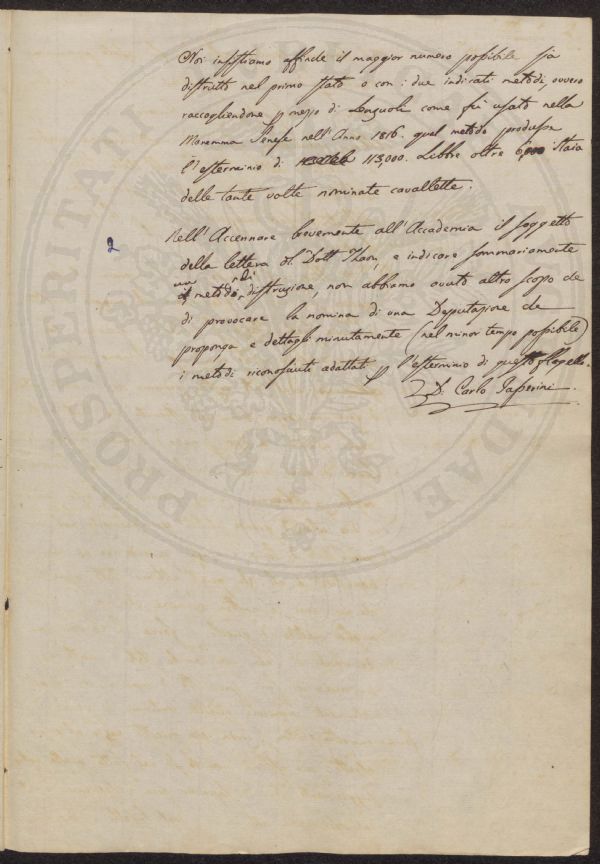 Noi insistiamo affinche il maggior numero possibile sia
distrutto nel primo stato o con i due indicati metodi, ovvero
raccogliendone p mezzo di Lenzuola come fu usato nella
Maremma Senese nell'Anno 1816. qual metodo produsse
l'esterminio di 113,000. Libbre oltre Staia
delle tante volte nominate cavallette.
2 Nell'Accennare brevemente all'Accademia il soggetto
della lettera del Dott Thaon, e indicare sommariamente
un metodo di distruzione, non abbiamo avuto altro scopo che
di provocare la nomina di una Deputazione che
proponga e dettagli minutamente (nel minor tempo possibile)
i metodi riconosciuti adattati p l'esterminio di questo flagello.
D. Carlo Passerini.
PROSPERITATI